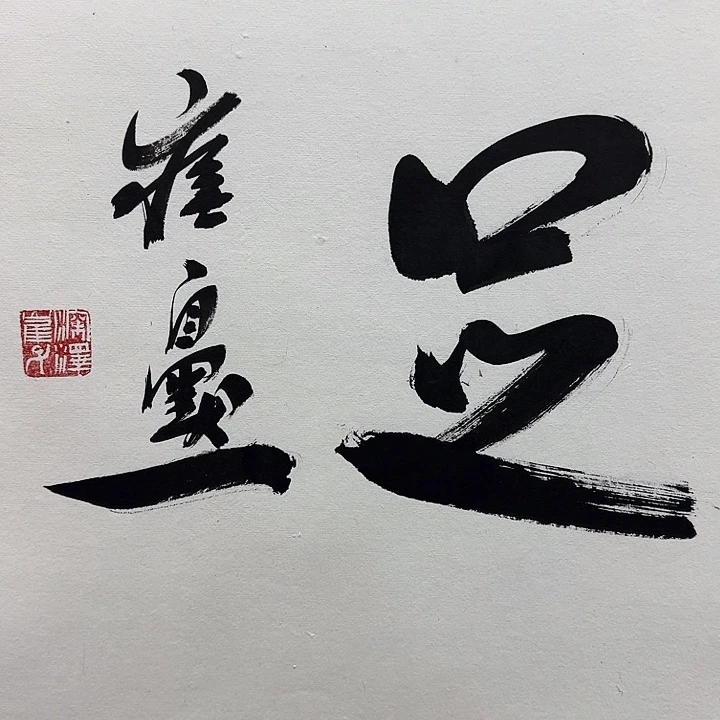 足
崔自默